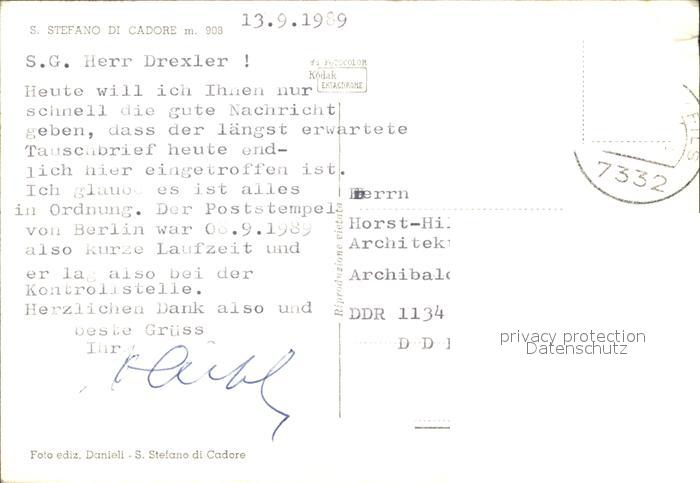 S. STEFANO DI CADORE m. 908
13.9.1989
S.G. Herr Drexler !
Heute will ich Ihnen nur
schnell die gute Nachricht
geben, dass der längst erwartete
Tauschbrief heute end-
lich hier eingetroffen ist.
Ich glaube es ist alles
in Ordnung. Der Poststempel
von Berlin war 06.9.1989
also kurze Laufzeit und
er lag also bei der
Kontrollstelle.
Herzlichen Dank also und
beste Grüss
Ihr
Foto ediz. Danieli - S. Stefano di Cadore
FOTOCOLOR
Kodak
EKTACHROME
Riproduzione vietata
7332
Herrn
Horst-Hil
Architekt
Archibald
DDR 1134
D D
privacy protection
Datenschutz